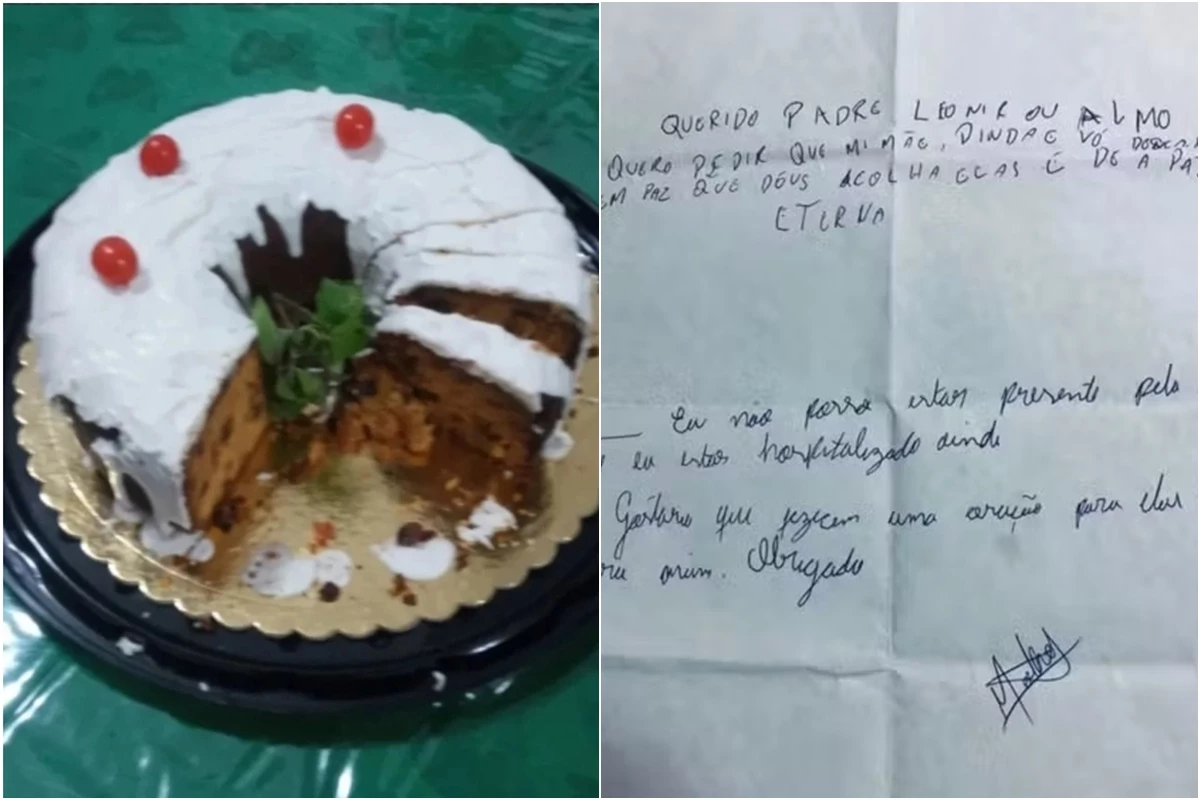 QUERIDO PADRE LEONIR OU ALMO
QUERO PEDIR QUE MI MÃE, DINDA E VÓ
EM PAZ QUE DEUS ACOLHA ELAS E DE A PAZ
ETERNA
Eu não posso estar presente pelo
eu estar hospitalizado ainda
Gostaria que fizecem uma oração para elas
mim. Obrigado